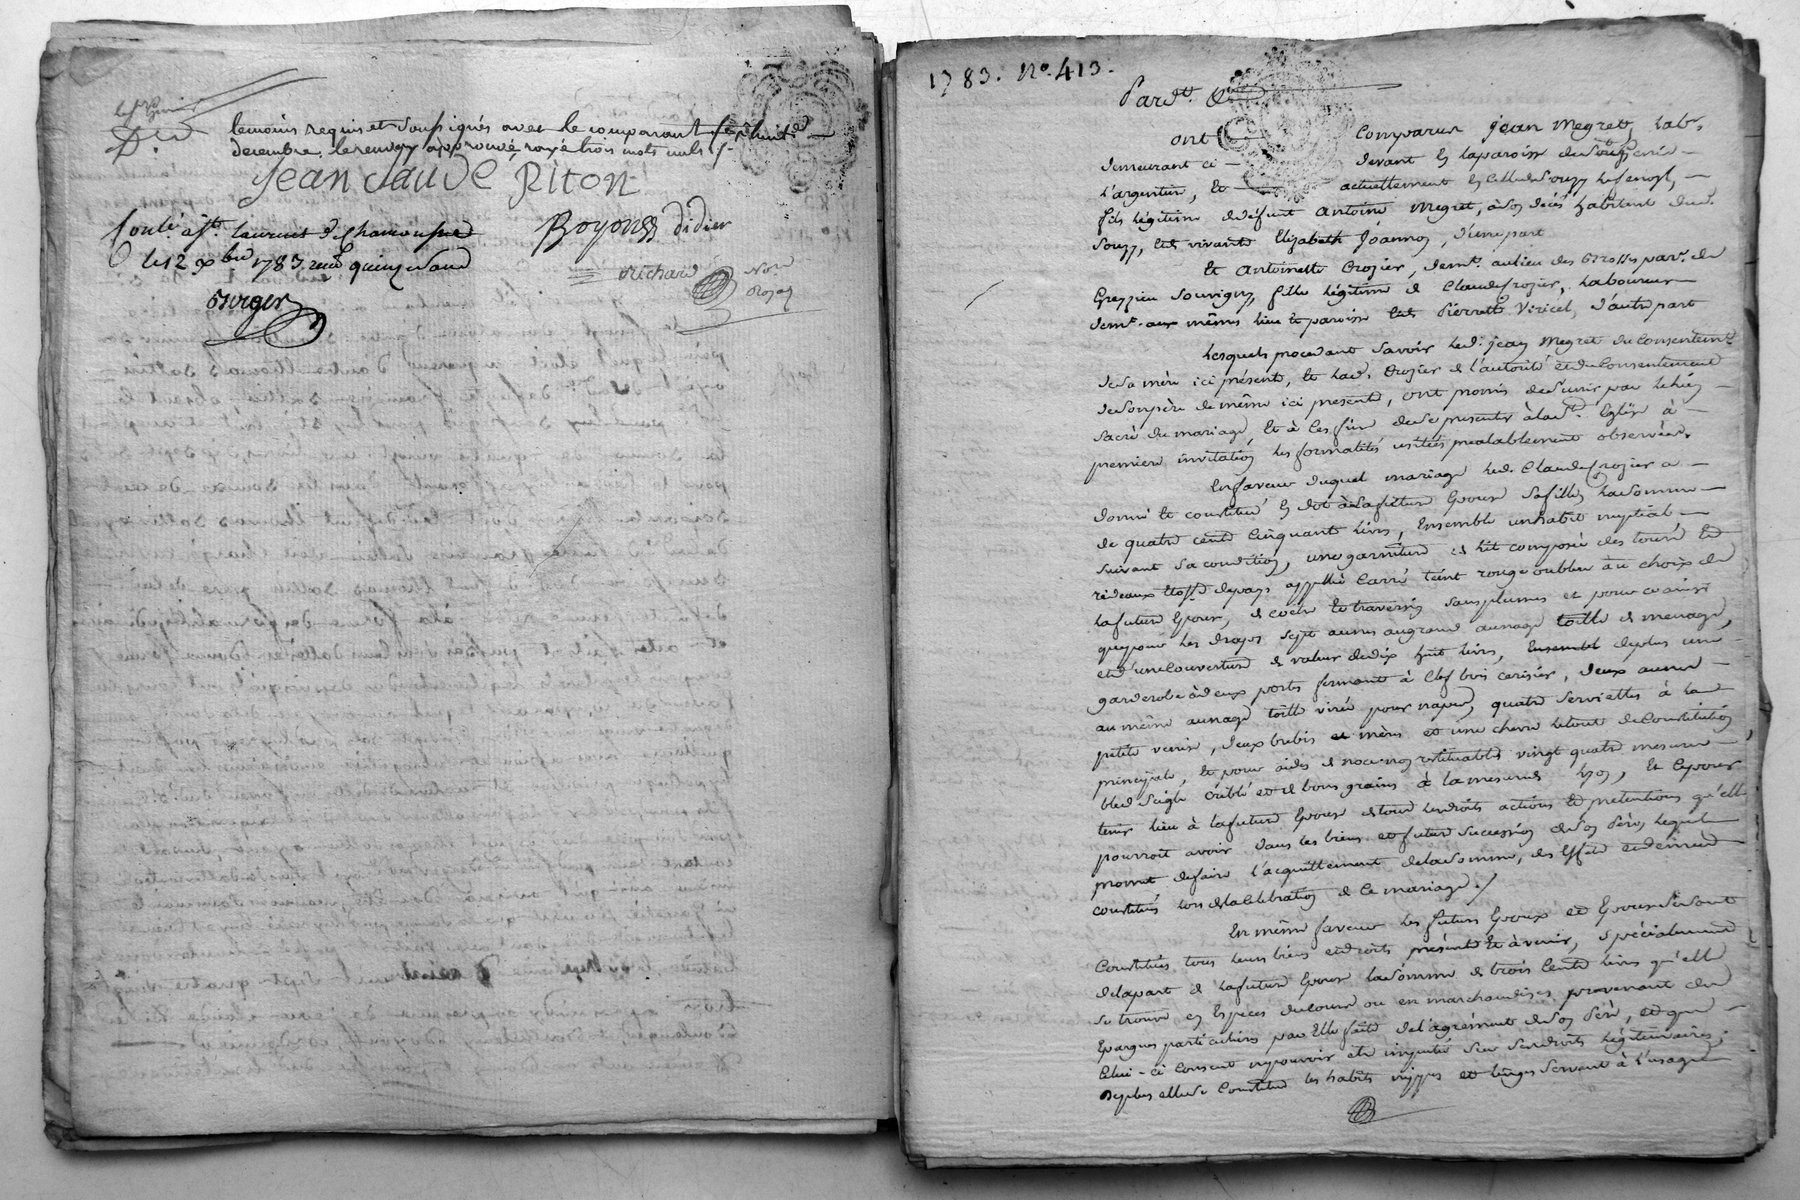 temoins requis et soussignés avec le comparant
decembre. le renvoy approuvé, rayé trois mots nuls
Jean Claude Piton
Royons Didier
Conté à St. Laurent de Chamousset
le 12 xbre 1783 reçu quinze sous
Richard Nore Royal
Burger
1783. No. 413.
Pardt.
ont Comparus Jean Megret, labr.
demeurant ci devant en la paroisse de
L'argentiere, et actuellement en celle de Souzy
fils légitime de défunt Antoine Megret, à son décès habitant dud.
Souzy, et de vivante Elizabeth Joannon, d'une part
Et Antoinette Crozier, demt. au lieu des par. de
Grezzieu Souvigny, fille légitime de Claude Crozier, laboureur
demt. aux mêmes lieu et paroisse et de Pierrette Viricel, d'autre part
Lesquels procedant savoir led. Jean Megret du consentemt.
de sa mère ici présente, et lad. Crozier de l'autorité et du consentement
de son père de même ici present, ont promis de s'unir par le lien
sacré du mariage et à ces fins de se presenter à la Ste. Eglise à
premiere invitation les formalités usitées prealablement observées.
En faveur duquel mariage led. Claude Crozier a
donné et constitué en dot à la future Epouse sa fille, la somme
de quatre cent cinquante livres, Ensemble un habit nuptial
suivant sa condition, une garniture de lit composée des tours et
rideaux etoffe de pays appellée Carré teint rouge ou bleu au choix de
la future Epouse, de coetre et traversin sans plumes et pour
que pour les draps sept aunes au grand aunage toille de menage,
et d'une couverture de valeur de dix huit livres, Ensemble de plus une
garderobe à deux portes fermant à clef bois cerisier, deux aunes
au même aunage toille virée pour nappe, quatre serviettes à la
petite venise, deux brebis meres et une chevre le tout de constitution
principale, et pour aides de noce non restituables vingt quatre mesures
bled seigle criblé et de bons grains à la mesure de Lyon, et ce pour
tenir lieu à la future Epouse de tous les droits actions et pretentions qu'elle
pourroit avoir dans les biens et future succession de son Père, lequel
promet de faire l'acquittement de la somme, des Effets et denrées
constitués lors de la célébration de ce mariage./
En même faveur les futurs Epoux et Epouse se sont
Constitués tous leurs biens et droits présents et à venir, spécialement
de la part de la future Epouse la somme de trois Cents livres qu'elle
se trouve en Especes de cours ou en marchandises provenant de
Epargnes particulières par Elle faites de l'agrément de son Père, et que
Celui-ci consent ne pouvoir être imputé sur ses droits légitimaires;
de plus elle se constitue les habits nippes et linges servant à l'usage